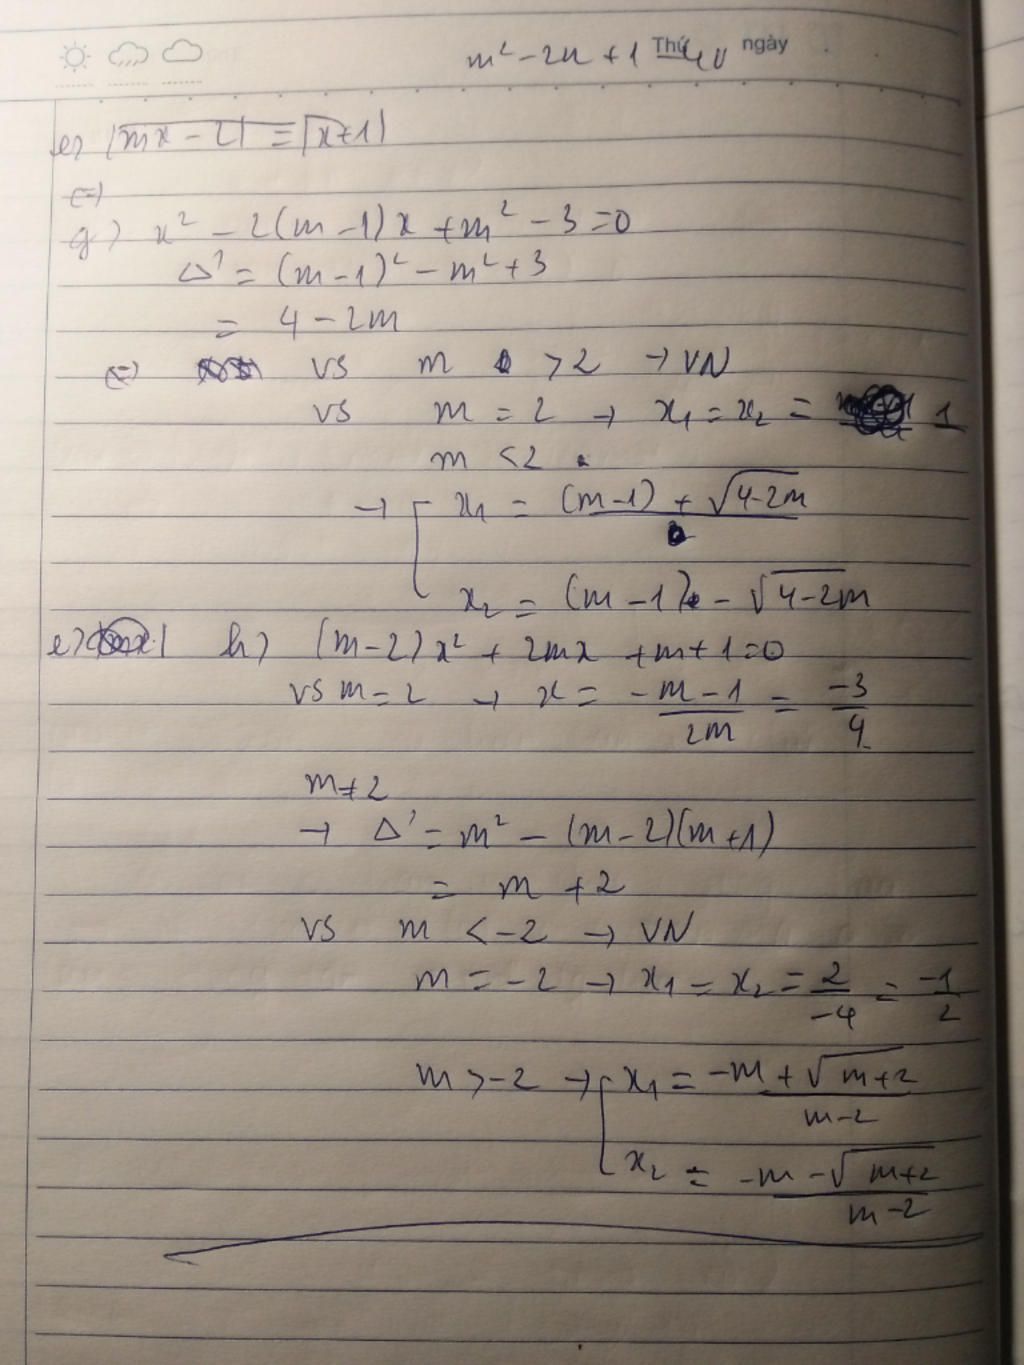 m² - 2m + 1 Thứ ngày
e) |mx - 2| = |x + 1|
<=>
g) x² - 2(m - 1)x + m² - 3 = 0
Δ' = (m - 1)² - m² + 3
= 4 - 2m
<=> vs m > 2 → VN
vs m = 2 → x₁ = x₂ = 1
m < 2
→ [ x₁ = (m - 1) + √(4 - 2m)
x₂ = (m - 1) - √(4 - 2m)
e) h) (m - 2)x² + 2mx + m + 1 = 0
vs m = 2 → x = (-m - 1)/(2m) = -3/4
m ≠ 2
→ Δ' = m² - (m - 2)(m + 1)
= m + 2
vs m < -2 → VN
m = -2 → x₁ = x₂ = 2/-4 = -1/2
m > -2 → [ x₁ = (-m + √(m + 2))/(m - 2)
x₂ = (-m - √(m + 2))/(m - 2)